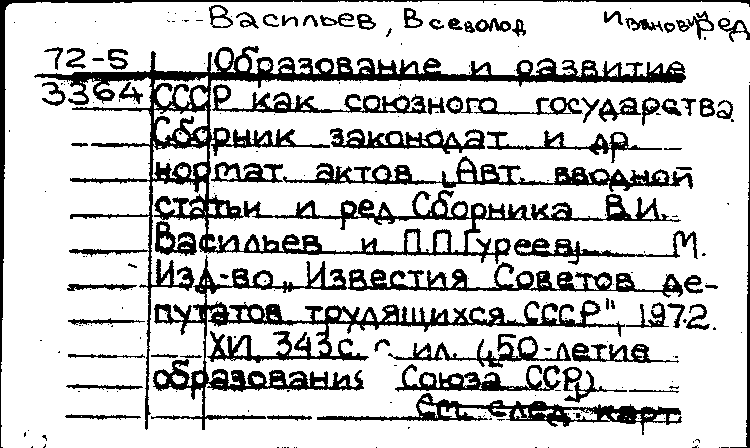 Васильев, Всеволод Иванович ред
72-5 Образование и развитие
3364 СССР как союзного государства
Сборник законодат и др.
нормат. актов [Авт. вводной
статьи и ред Сборника В.И.
Васильев и П.П.Гуреев]. М.
Изд-во „Известия Советов де-
путатов трудящихся СССР", 1972.
XVI, 343с. с ил. (50-летие
образования Союза ССР).
См. след. карт.